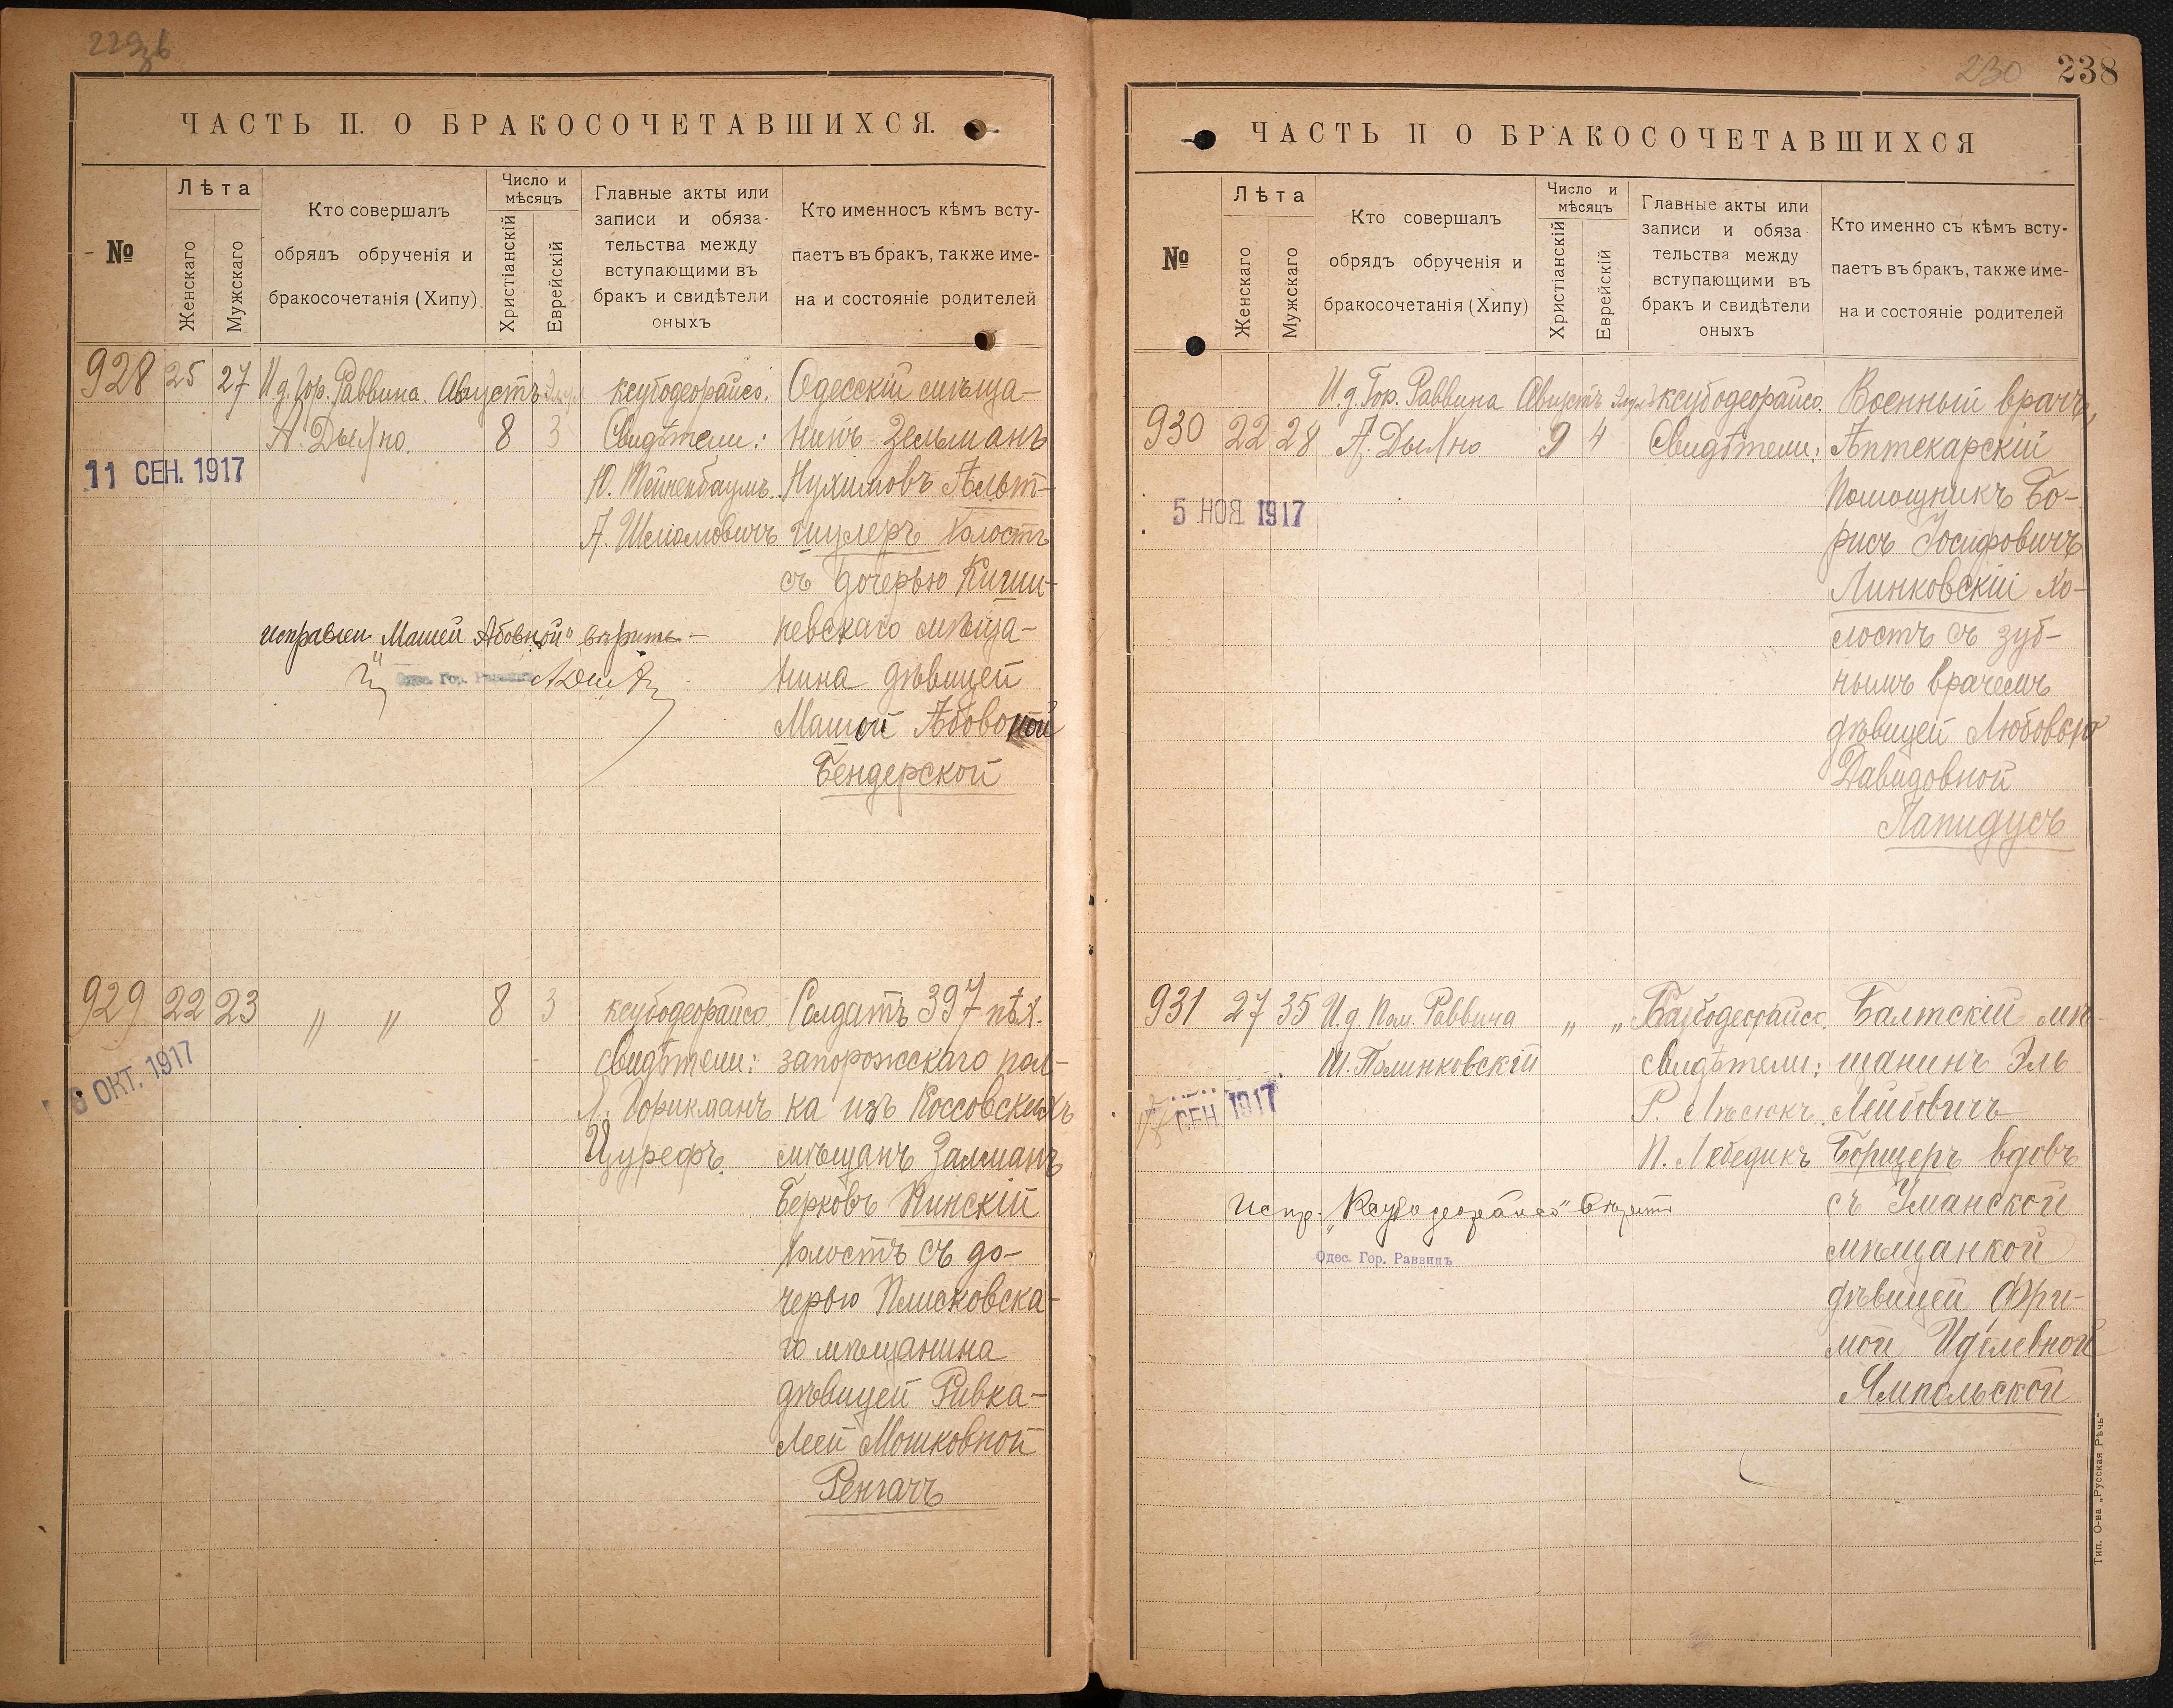 229зв
ЧАСТЬ II. О БРАКОСОЧЕТАВШИХСЯ.
№
Лѣта
Женскаго
Мужскаго
Кто совершалъ
обрядъ обрученія и
бракосочетанія (Хипу)
Число и
мѣсяцъ
Христіанскій
Еврейскій
Главные акты или
записи и обяза-
тельства между
вступающими въ
бракъ и свидѣтели
оныхъ
Кто именносъ кѣмъ всту-
паетъ въ бракъ, также име-
на и состояніе родителей
928 25 27 И.д. Гор. Раввина. Августъ ксубодеорайсо. Одесскій мѣща-
А. Дыхно. 8 3 Свидѣтели: нинъ Зельманъ
11 СЕН. 1917
Ю. Нухимовъ Альт-
А. шулеръ холостъ
съ дочерью Киши-
невскаго мѣща-
нина дѣвицей
Машей Абовной
Бендерской
исправлен. „Машей Абовной" вѣрить —
Одес. Гор. Раввинъ
929 22 23 " " 8 3 ксубодеорайсо. Солдатъ 397 пѣх.
свидѣтели: запорожскаго пол-
8 ОКТ. 1917
ка изъ Коссовскихъ
Цурефъ. мѣщанъ Залманъ
Берковъ Пинскій
холостъ съ до-
черью Плисковска-
го мѣщанина
дѣвицей Ривка-
Леей Мошковной
Ренгачъ
230 238
ЧАСТЬ II О БРАКОСОЧЕТАВШИХСЯ
№
Лѣта
Женскаго
Мужскаго
Кто совершалъ
обрядъ обрученія и
бракосочетанія (Хипу)
Число и
мѣсяцъ
Христіанскій
Еврейскій
Главные акты или
записи и обяза
тельства между
вступающими въ
бракъ и свидѣтели
оныхъ
Кто именно съ кѣмъ всту-
паетъ въ бракъ, также име-
на и состояніе родителей
И.д. Гор. Раввина Августъ Элулъ ксубодеорайсо. Военный врачъ,
930 22 28 А. Дыхно 9 4 Свидѣтели: Аптекарскій
Помощникъ Бо-
5 НОЯ. 1917
рисъ Іосифовичъ
Линковскій хо-
лостъ съ зуб-
нымъ врачемъ
дѣвицей Любовью
Давидовной
Лапидусъ
931 27 35 И.д. Пом. Раввина „ „ Ксубодеорайсо. Балтскій мѣ-
Ш. Полинковскій свидѣтели: щанинъ Эль
СЕН 1917
Р. Лейбовичъ
П. Лебедикъ Борщеръ вдовъ
съ Уманской
мѣщанкой
дѣвицей Фри-
мой Иделевной
Ямпольской
Испр. „Ксубодеорайсо" вѣрить
Одес. Гор. Раввинъ
Тип. О-ва „Русская Рѣчь"